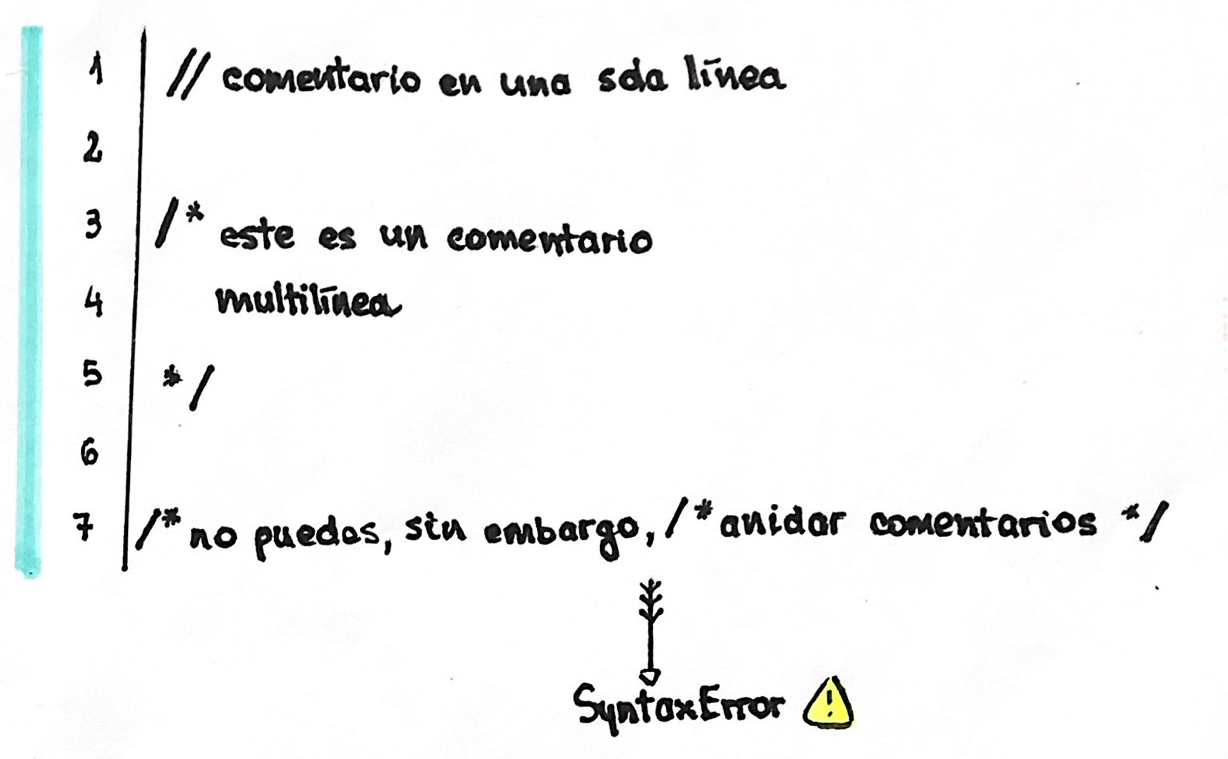 1 // comentario en una sola línea
2
3 /* este es un comentario
4 multilínea
5 */
6
7 /* no puedes, sin embargo, /* anidar comentarios */
SyntaxError